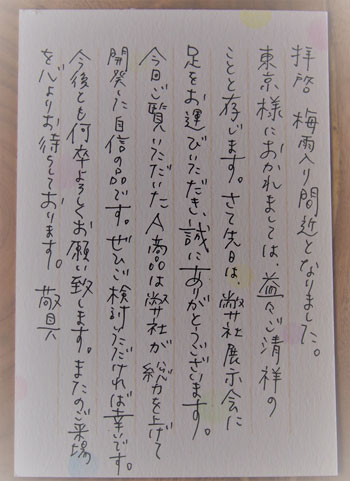 拝啓 梅雨入り間近となりました。
東京様におかれましては、益々ご清祥の
ことと存じます。さて先日は、弊社展示会に
足をお運びいただき、誠にありがとうございます。
今日ご覧いただいたA商品は弊社が総力を上げて
開発した自信の品です。ぜひご検討いただければ幸いです。
今後とも何卒よろしくお願い致します。またのご来場
を心よりお待ちしております。 敬具